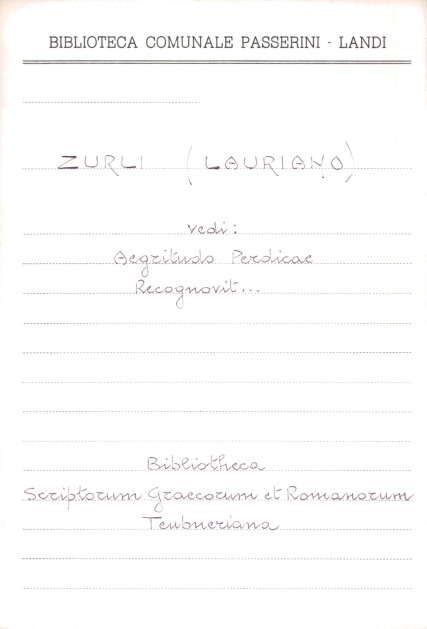 BIBLIOTECA COMUNALE PASSERINI - LANDI
ZURLI (LAURIANO)
vedi:
Aegritudo Perdicae
Recognovit...
Bibliotheca
Scriptorum Graecorum et Romanorum
Teubneriana